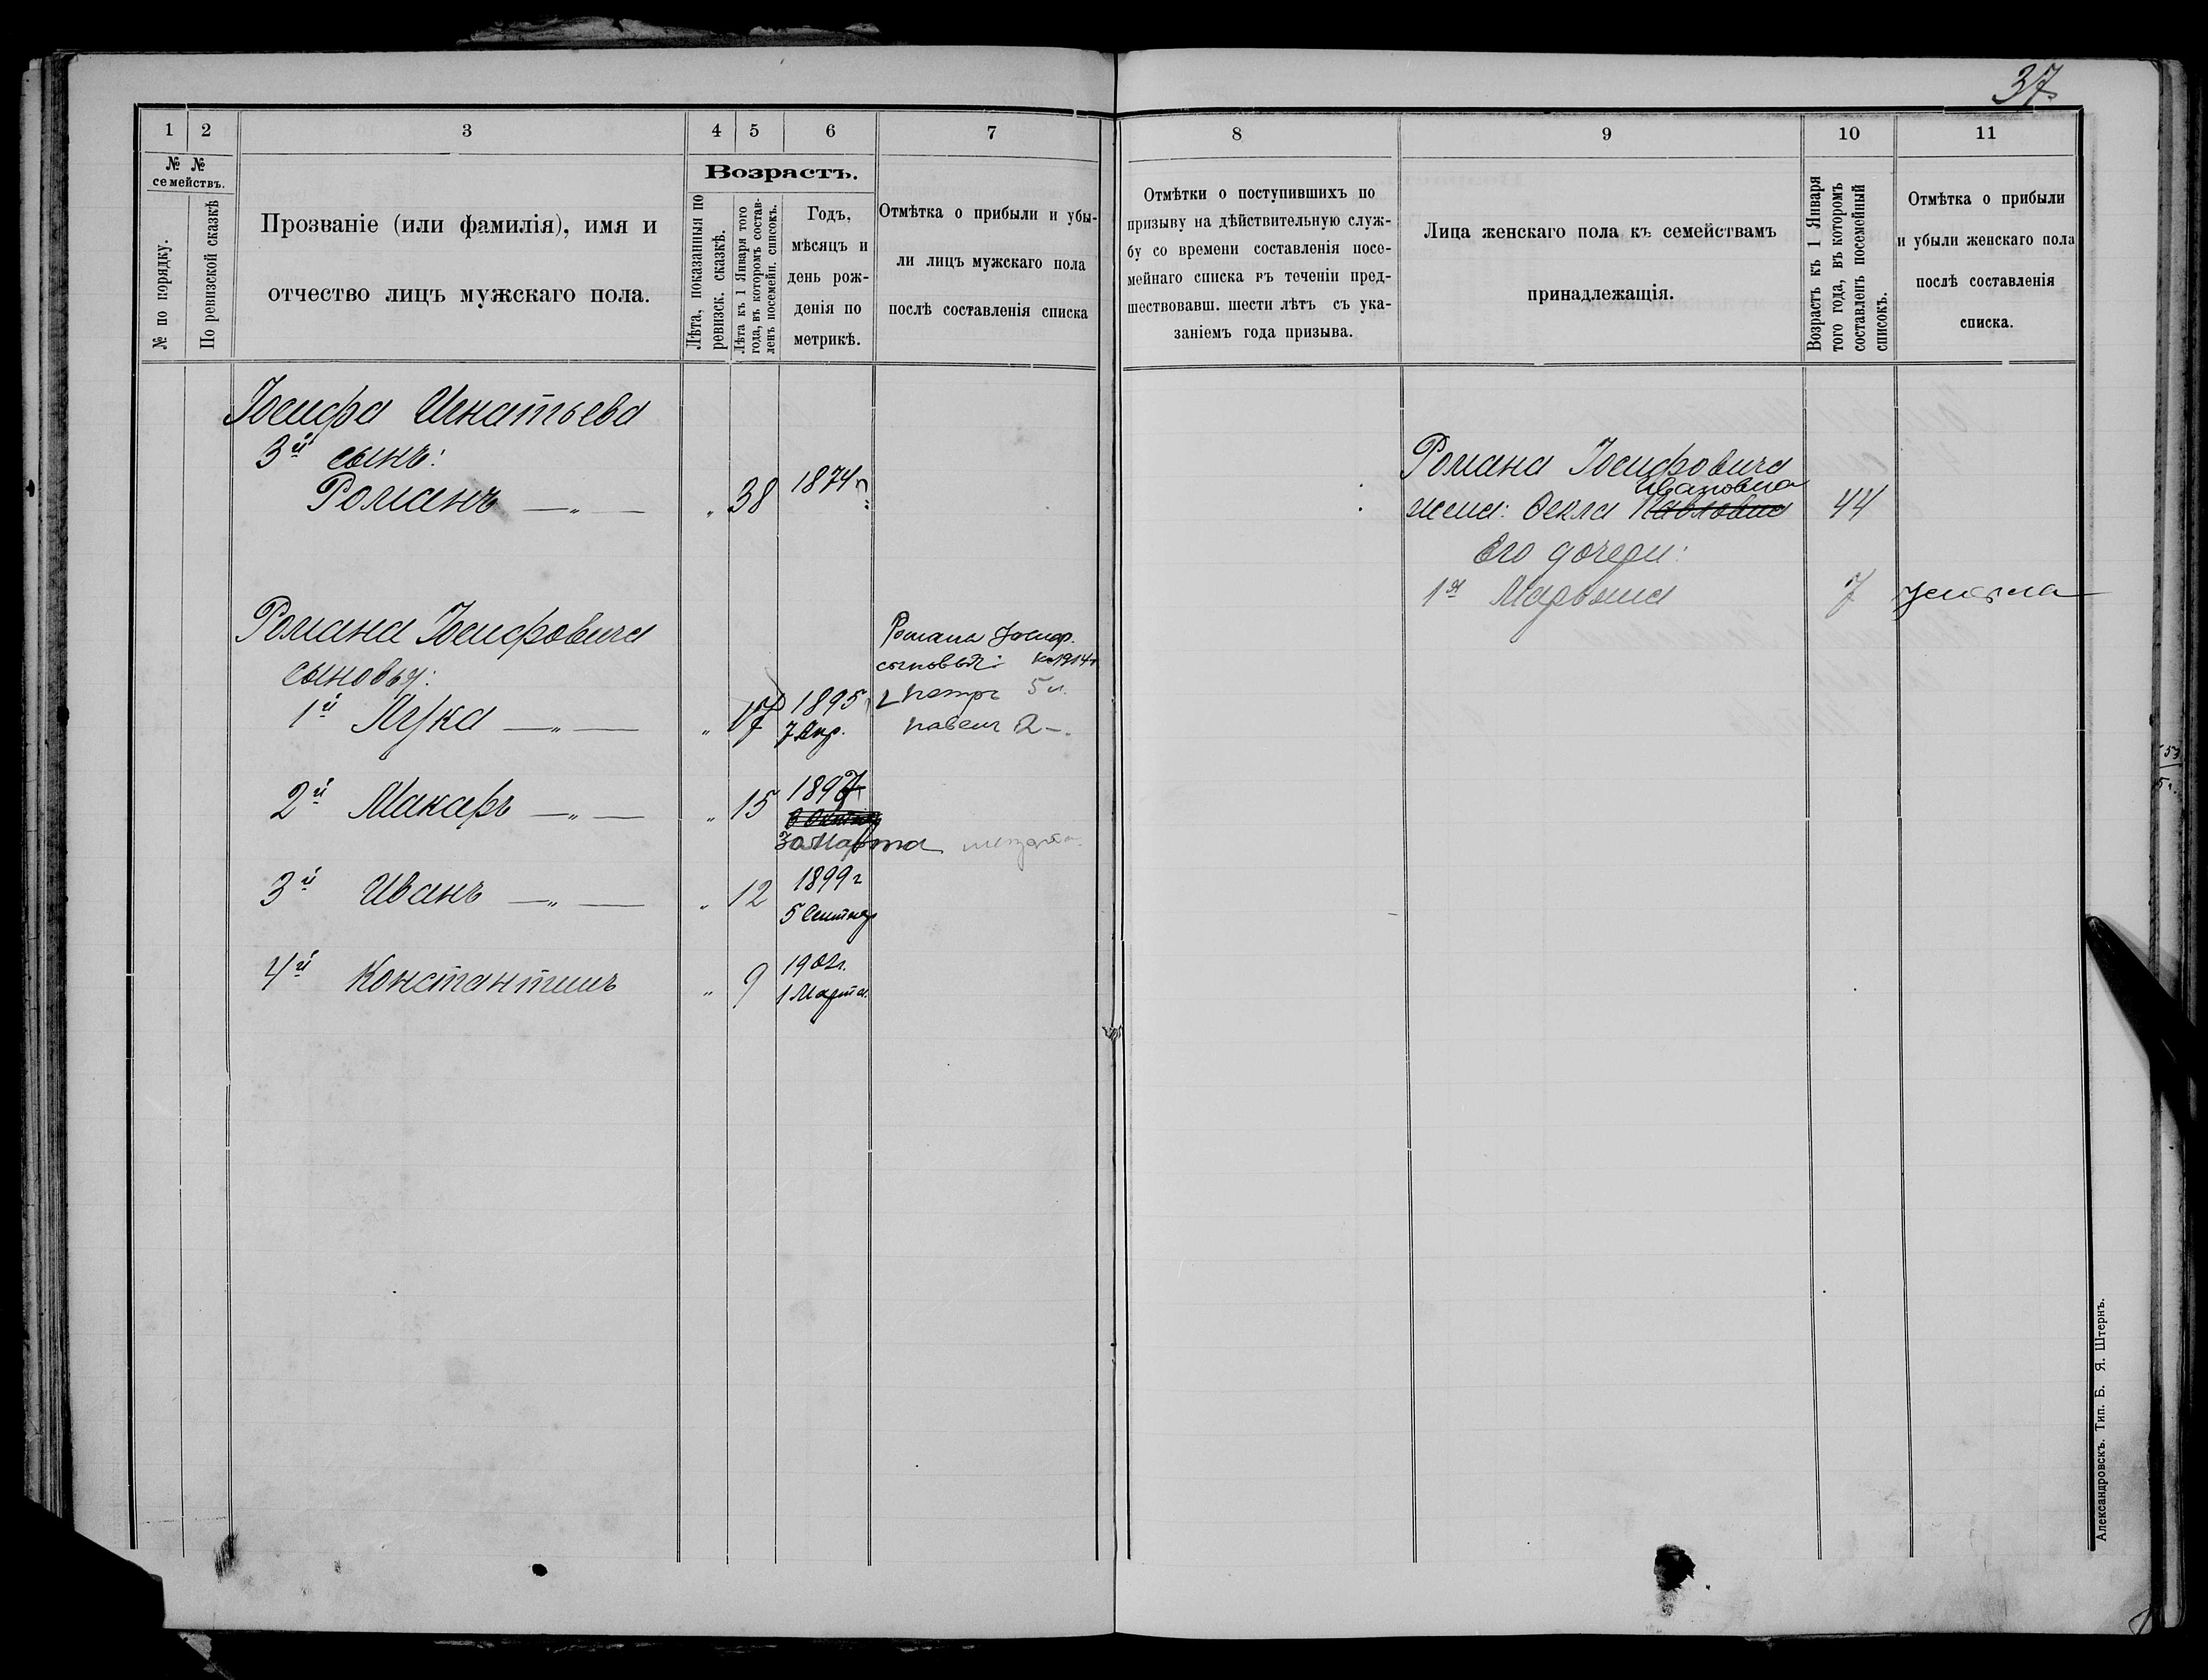 37
1 2 3 4 5 6 7
№ № семействъ.
№ по порядку.
По ревизской сказкѣ
Прозваніе (или фамилія), имя и
отчество лицъ мужскаго пола.
Возрастъ.
Лѣта, показанныя по
ревизск. сказкѣ.
Лѣта къ 1 Января того
года, въ которомъ состав-
ленъ посемейн. списокъ.
Годъ,
мѣсяцъ и
день рож-
денія по
метрикѣ.
Отмѣтка о прибыли и убы-
ли лицъ мужскаго пола
послѣ составленія списка
Іосифа Игнатьева
3й сынъ:
Романъ — „ — „ 38 1874 г.
Романа Іосифовича
сыновья:
1й Лука — „ — „ 17 1895
7 Апр.
Романа Іосиф.
сыновья: к 1914 г
Петръ 5 л.
Павелъ 2 —.
2й Макаръ — „ — „ 15 1897
30 Марта
3й Иванъ — „ — „ 12 1899 г
5 Сентяр
4й Константинъ „ 9 1902 г.
1 Марта.
8 9 10 11
Отмѣтки о поступившихъ по
призыву на дѣйствительную служ-
бу со времени составленія посе-
мейнаго списка въ теченіи пред-
шествовавш. шести лѣтъ съ ука-
заніемъ года призыва.
Лица женскаго пола къ семействамъ
принадлежащія.
Возрастъ къ 1 Января
того года, въ которомъ
составленъ посемейный
списокъ.
Отмѣтка о прибыли
и убыли женскаго пола
послѣ составленія
списка.
Романа Іосифовича
Ивановна
жена: Фекла Павловна 44
Его дочери:
1я Марѳина 7 умерла
Александровскъ. Тип. Б. Я. Штернъ.